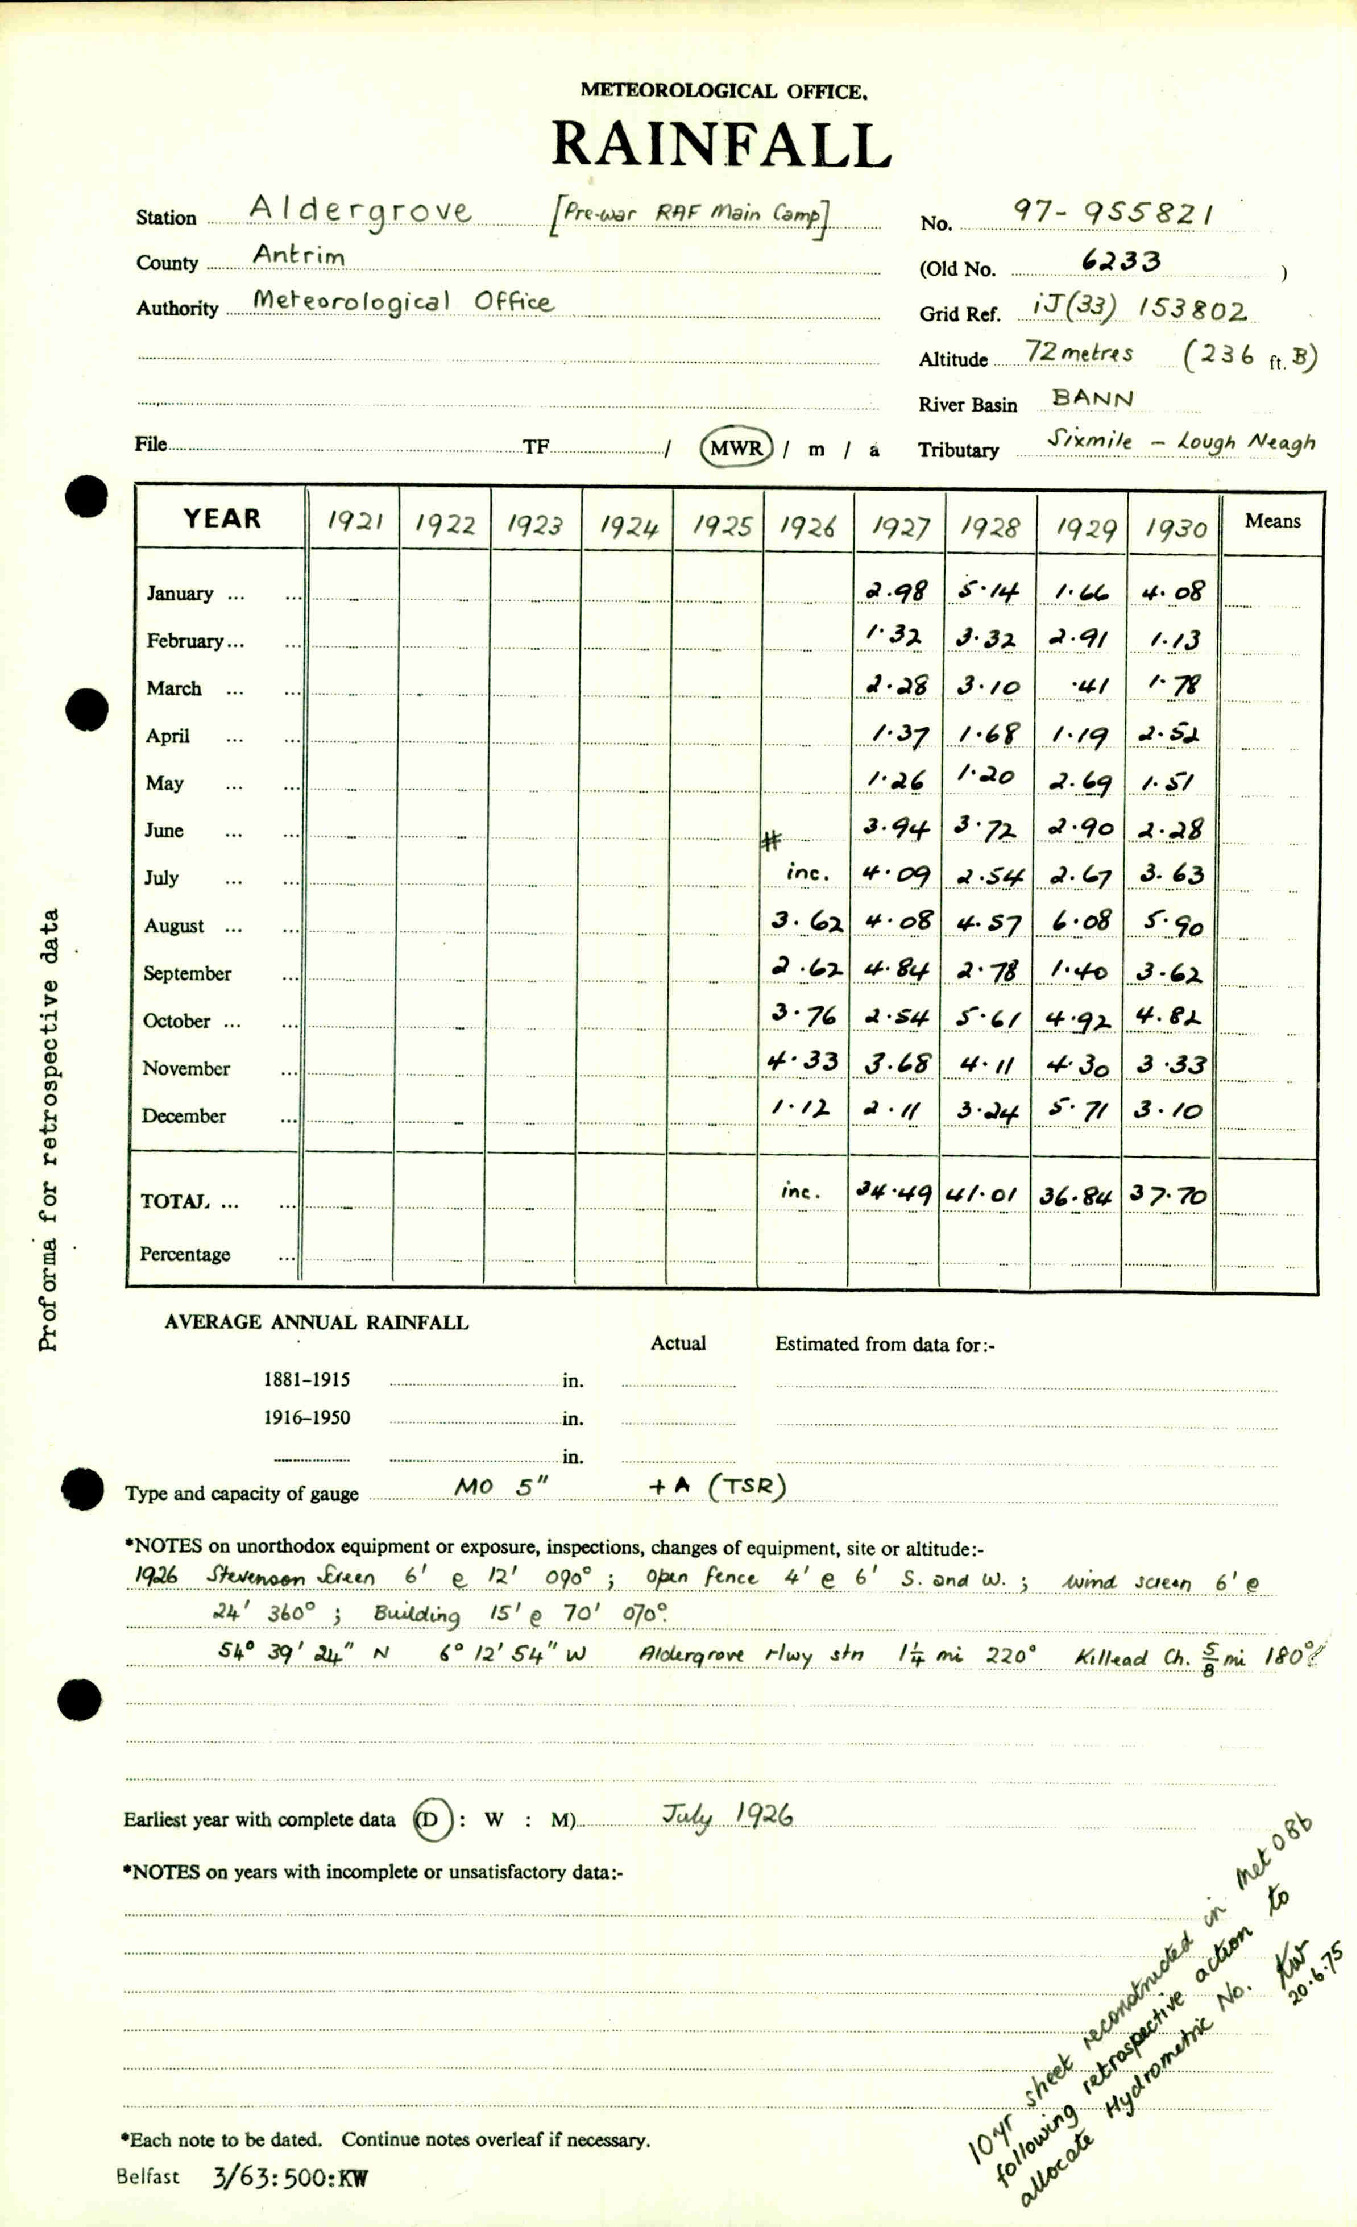 METEOROLOGICAL OFFICE.
RAINFALL
Station Aldergrove [Pre-war RAF Main Camp] No. 97-955821
County Antrim (Old No. 6233 )
Authority Meteorological Office Grid Ref. iJ(33) 153802
Altitude 72 metres (236 ft. B)
River Basin BANN
File TF / MWR / m / a Tributary Sixmile - Lough Neagh
YEAR 1921 1922 1923 1924 1925 1926 1927 1928 1929 1930 Means
January ... ... 2.98 5.14 1.66 4.08
February ... ... 1.32 3.32 2.91 1.13
March ... ... 2.28 3.10 .41 1.78
April ... ... 1.37 1.68 1.19 2.52
May ... ... 1.26 1.20 2.69 1.51
June ... ... # 3.94 3.72 2.90 2.28
July ... ... inc. 4.09 2.54 2.67 3.63
August ... ... 3.62 4.08 4.57 6.08 5.90
September ... 2.62 4.84 2.78 1.40 3.62
October ... ... 3.76 2.54 5.61 4.92 4.82
November ... 4.33 3.68 4.11 4.30 3.33
December ... 1.12 2.11 3.24 5.71 3.10
TOTAL ... ... inc. 34.49 41.01 36.84 37.70
Percentage ...
Proforma for retrospective data
AVERAGE ANNUAL RAINFALL
Actual Estimated from data for:-
1881-1915 in.
1916-1950 in.
in.
Type and capacity of gauge MO 5" + A (TSR)
*NOTES on unorthodox equipment or exposure, inspections, changes of equipment, site or altitude:-
1926 Stevenson Screen 6' @ 12' 090° ; open fence 4' @ 6' S. and W. ; wind screen 6' @
24' 360° ; Building 15' @ 70' 070°.
54° 39' 24" N 6° 12' 54" W Aldergrove rlwy stn 1¼ mi 220° Killead Ch. ⅝ mi 180°
Earliest year with complete data (D : W : M) July 1926
*NOTES on years with incomplete or unsatisfactory data:-
10 yr sheet reconstructed in Met O8b
following retrospective action to
allocate Hydrometric No. KW
20.6.75
*Each note to be dated. Continue notes overleaf if necessary.
Belfast 3/63:500:KW